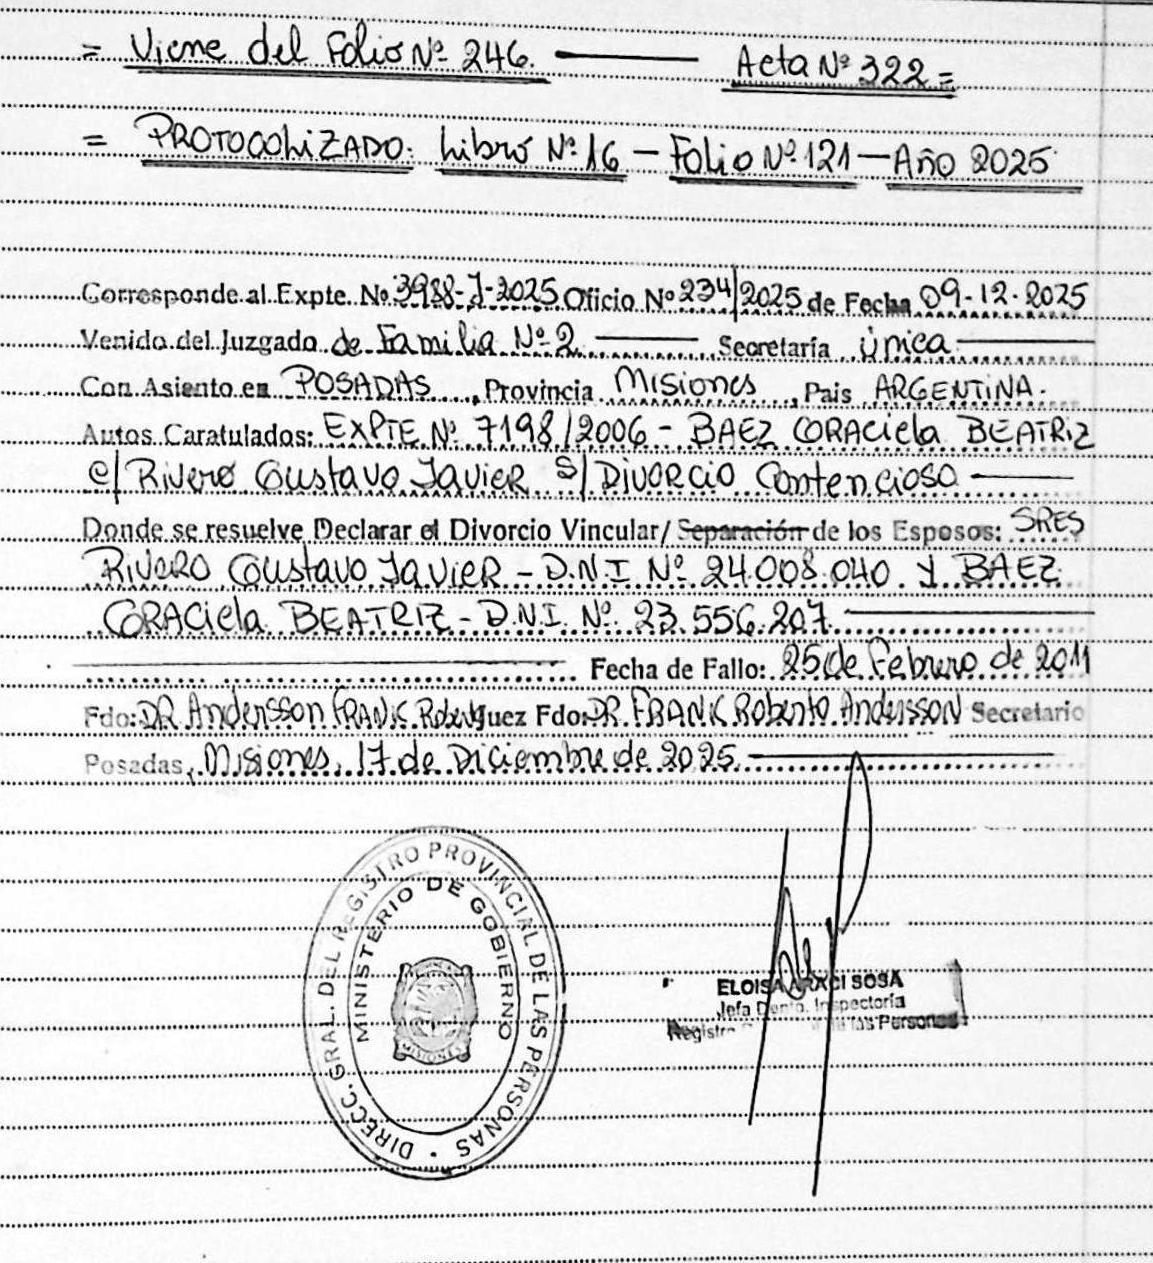 = Viene del Folio Nº 246. Acta Nº 322 =
= PROTOCOLIZADO: Libro Nº 16 – Folio Nº 121 – Año 2025
Corresponde al Expte. Nº 3988-J-2025 Oficio Nº 234/2025 de Fecha 09-12-2025
Venido del Juzgado de Familia Nº 2 Secretaría Única
Con Asiento en POSADAS, Provincia Misiones, Pais ARGENTINA.
Autos Caratulados: EXPTE Nº 7198/2006 - BAEZ GRACiela BEATRiz
c/ Rivero Gustavo Javier s/ Divorcio Contencioso
Donde se resuelve Declarar el Divorcio Vincular/ Separación de los Esposos: SRES
Rivero Gustavo Javier - D.N.I Nº 24.008.040 y BAEZ
GRACiela BEATRIZ - D.N.I. Nº 23.556.207
Fecha de Fallo: 25 de Febrero de 2011
Fdo: DR. Andersson FRANK Fdo: DR. FRANK Roberto Andersson Secretario
Posadas, Misiones, 17 de Diciembre de 2025
DIRECC. GRAL. DEL REGISTRO PROVINCIAL DE LAS PERSONAS
MINISTERIO DE GOBIERNO
MISIONES
ELOISA ARACI SOSA
Jefa Dpto. Inspectoría
Registro de las Personas